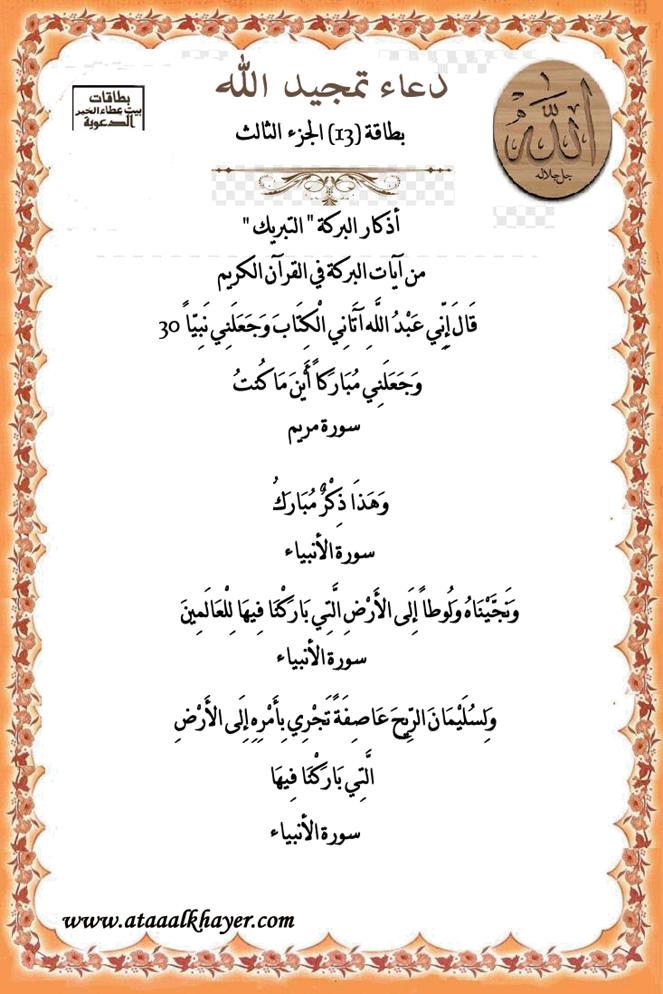 دعاء تمجيد الله
بطاقات
بيت عطاء الخير
الدعوية
الله
جل جلاله
بطاقة (13) الجزء الثالث
أذكار البركة " التبريك "
من آيات البركة في القرآن الكريم
قَالَ إِنِّي عَبْدُ اللَّهِ آتَانِي الْكِتَابَ وَجَعَلَنِي نَبِيّاً 30
وَجَعَلَنِي مُبَارَكاً أَيْنَ مَا كُنتُ
سورة مريم
وَهَذَا ذِكْرٌ مُبَارَكٌ
سورة الأنبياء
وَنَجَّيْنَاهُ وَلُوطاً إِلَى الْأَرْضِ الَّتِي بَارَكْنَا فِيهَا لِلْعَالَمِينَ
سورة الأنبياء
وَلِسُلَيْمَانَ الرِّيحَ عَاصِفَةً تَجْرِي بِأَمْرِهِ إِلَى الْأَرْضِ
الَّتِي بَارَكْنَا فِيهَا
سورة الأنبياء
www.ataaalkhayer.com